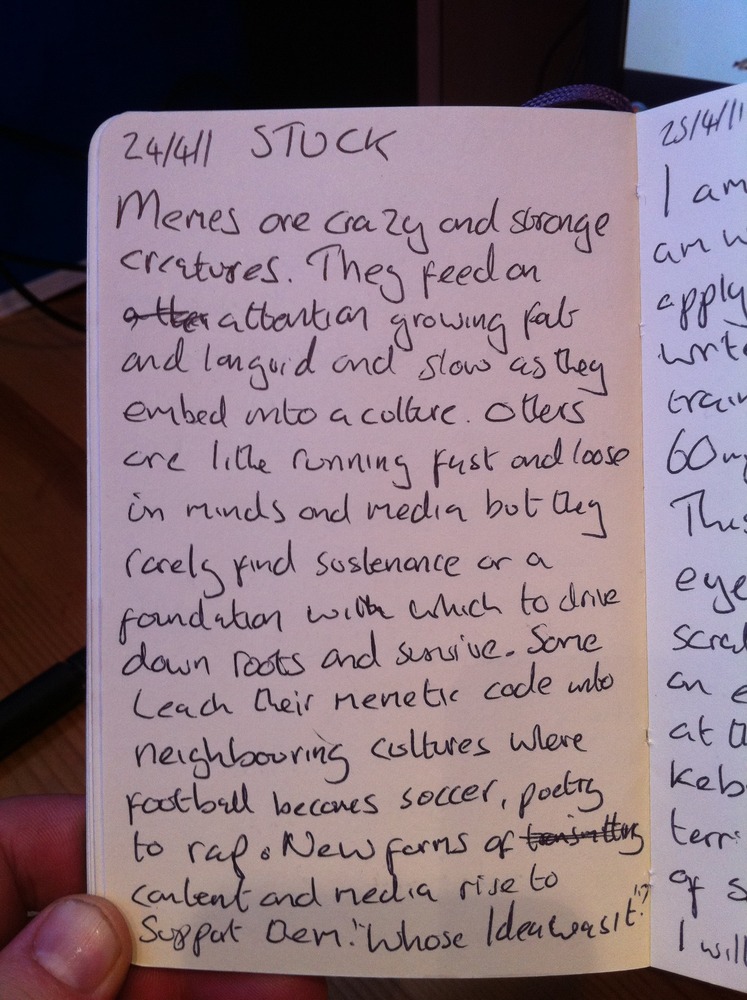 24/4/11 STUCK
Memes are crazy and strange
creatures. They feed on
atten attention growing fat
and languid and slow as they
embed into a culture. Others
are lithe running fast and loose
in minds and media but they
rarely find sustenance or a
foundation with which to drive
down roots and survive. Some
Leach their memetic code into
neighbouring cultures where
football becomes soccer, poetry
to rap. New forms of transmitting
content and media rise to
Support them. "Whose Idea was It"?
25/4/11
I am
am w
apply
write
train
60mg
This
eye
scra
an e
at th
Keb
terri
of s
I will